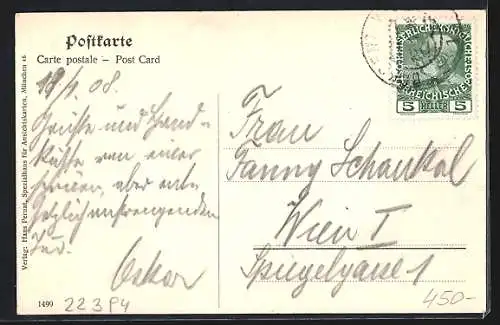 Postkarte
Carte postale – Post Card
Verlag: Hans Pernat, Spezialhaus für Ansichtskarten, München 26
KAISERLICH KÖNIGLICHE
ÖSTERREICHISCHE POST
5 HELLER 5
08.
Grüße und Hand-
küsse von einer
schönen, aber
anstrengenden
Oskar
Frau
Fanny Schankal
Wien I
Spiegelgasse 1
1499
223P4
450-